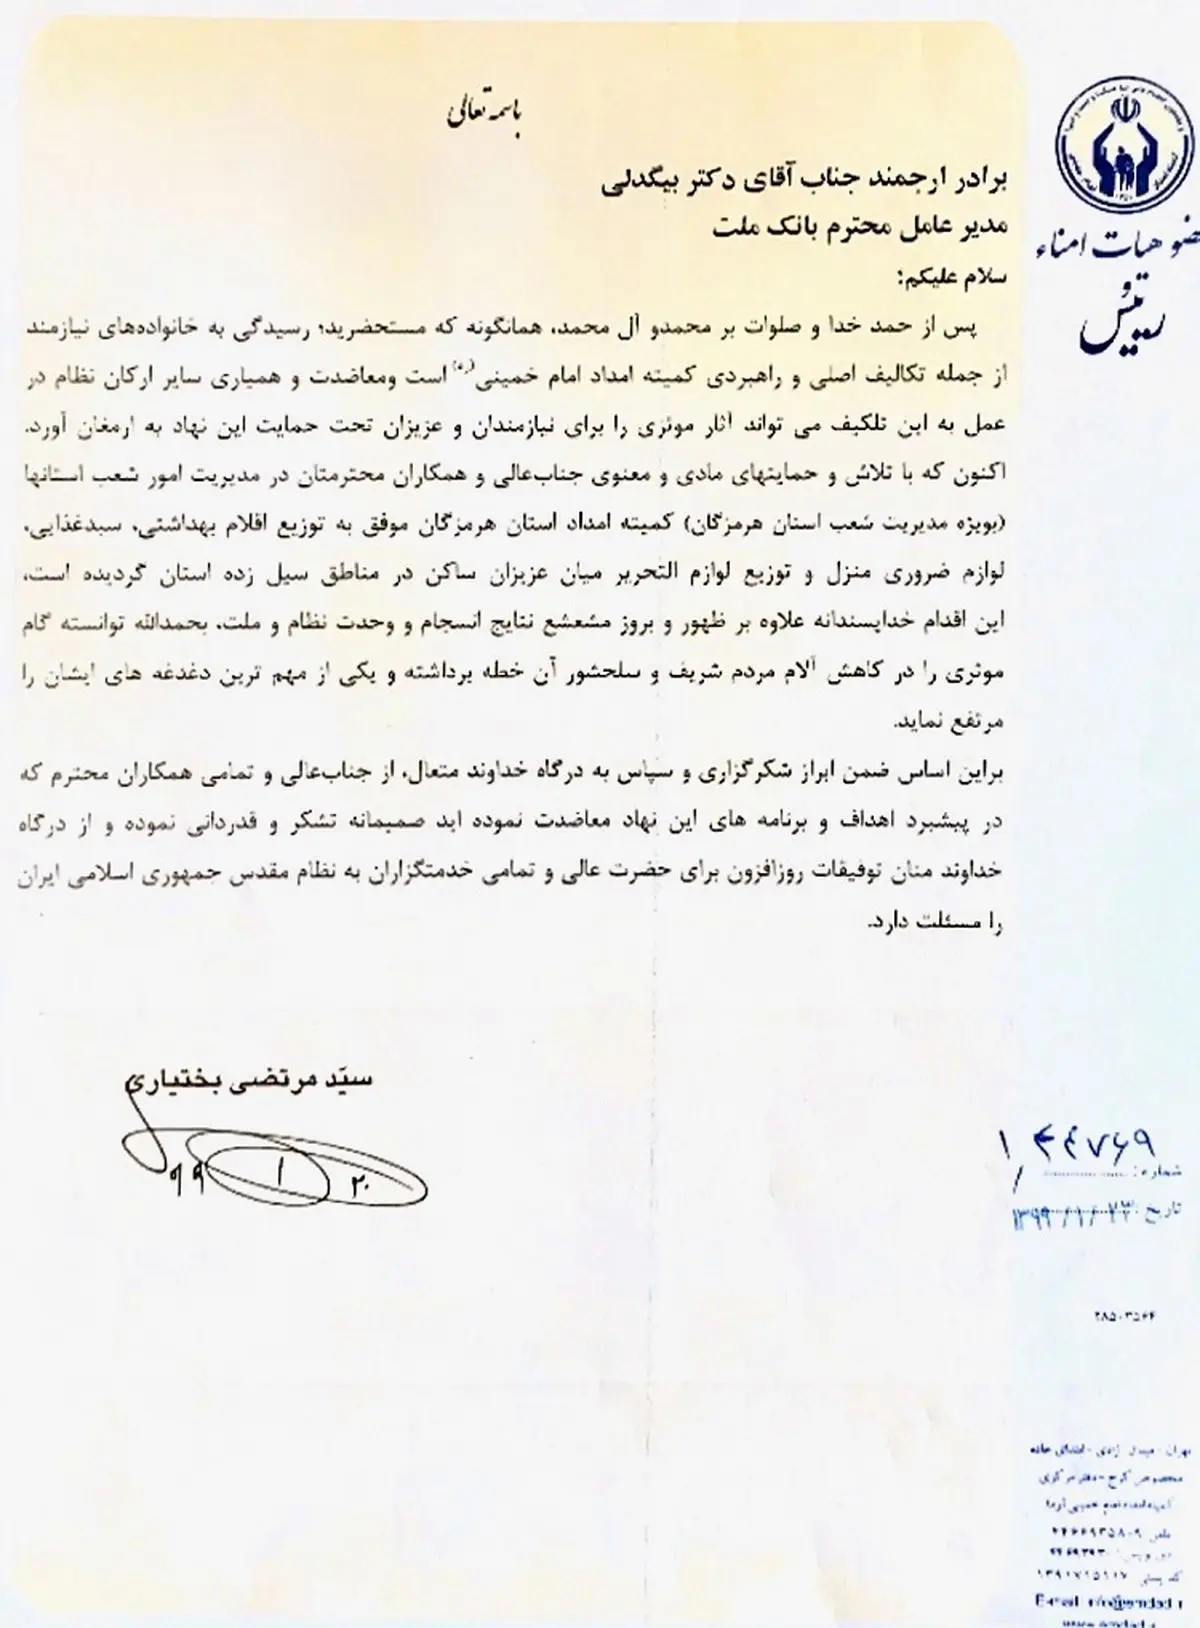 باسمه تعالی
برادر ارجمند جناب آقای دکتر بیگدلی
مدیر عامل محترم بانک ملت
سلام علیکم؛
پس از حمد خدا و صلوات بر محمدو آل محمد، همانگونه که مستحضرید؛ رسیدگی به خانواده‌های نیازمند
از جمله تکالیف اصلی و راهبردی کمیته امداد امام خمینی(ره) است ومعاضدت و همیاری سایر ارکان نظام در
عمل به این تلکیف می تواند آثار موثری را برای نیازمندان و عزیزان تحت حمایت این نهاد به ارمغان آورد.
اکنون که با تلاش و حمایتهای مادی و معنوی جناب‌عالی و همکاران محترمتان در مدیریت امور شعب استانها
(بویژه مدیریت شعب استان هرمزگان) کمیته امداد استان هرمزگان موفق به توزیع اقلام بهداشتی، سبدغذایی،
لوازم ضروری منزل و توزیع لوازم التحریر میان عزیزان ساکن در مناطق سیل زده استان گردیده است،
این اقدام خداپسندانه علاوه بر ظهور و بروز مشعشع نتایج انسجام و وحدت نظام و ملت، بحمدالله توانسته گام
موثری را در کاهش آلام مردم شریف و سلحشور آن خطه برداشته و یکی از مهم ترین دغدغه های ایشان را
مرتفع نماید.
براین اساس ضمن ابراز شکرگزاری و سپاس به درگاه خداوند متعال، از جناب‌عالی و تمامی همکاران محترم که
در پیشبرد اهداف و برنامه های این نهاد معاضدت نموده اید صمیمانه تشکر و قدردانی نموده و از درگاه
خداوند منان توفیقات روزافزون برای حضرت عالی و تمامی خدمتگزاران به نظام مقدس جمهوری اسلامی ایران
را مسئلت دارد.
سیّد مرتضی بختیاری
۹۹ ۱ ۲۰
عضو هیات امناء
و
رئیس
شماره:
تاریخ: ۱۳۹۹/۱/۲۳
۲۸۵۰۳۵۶۴
تهران - میدان آزادی - ابتدای جاده
مخصوص کرج - دفتر مرکزی
کمیته امداد امام خمینی (ره)
تلفن
کد پستی ۱۳۹۱۷۱۵۱۱۷
E-mail